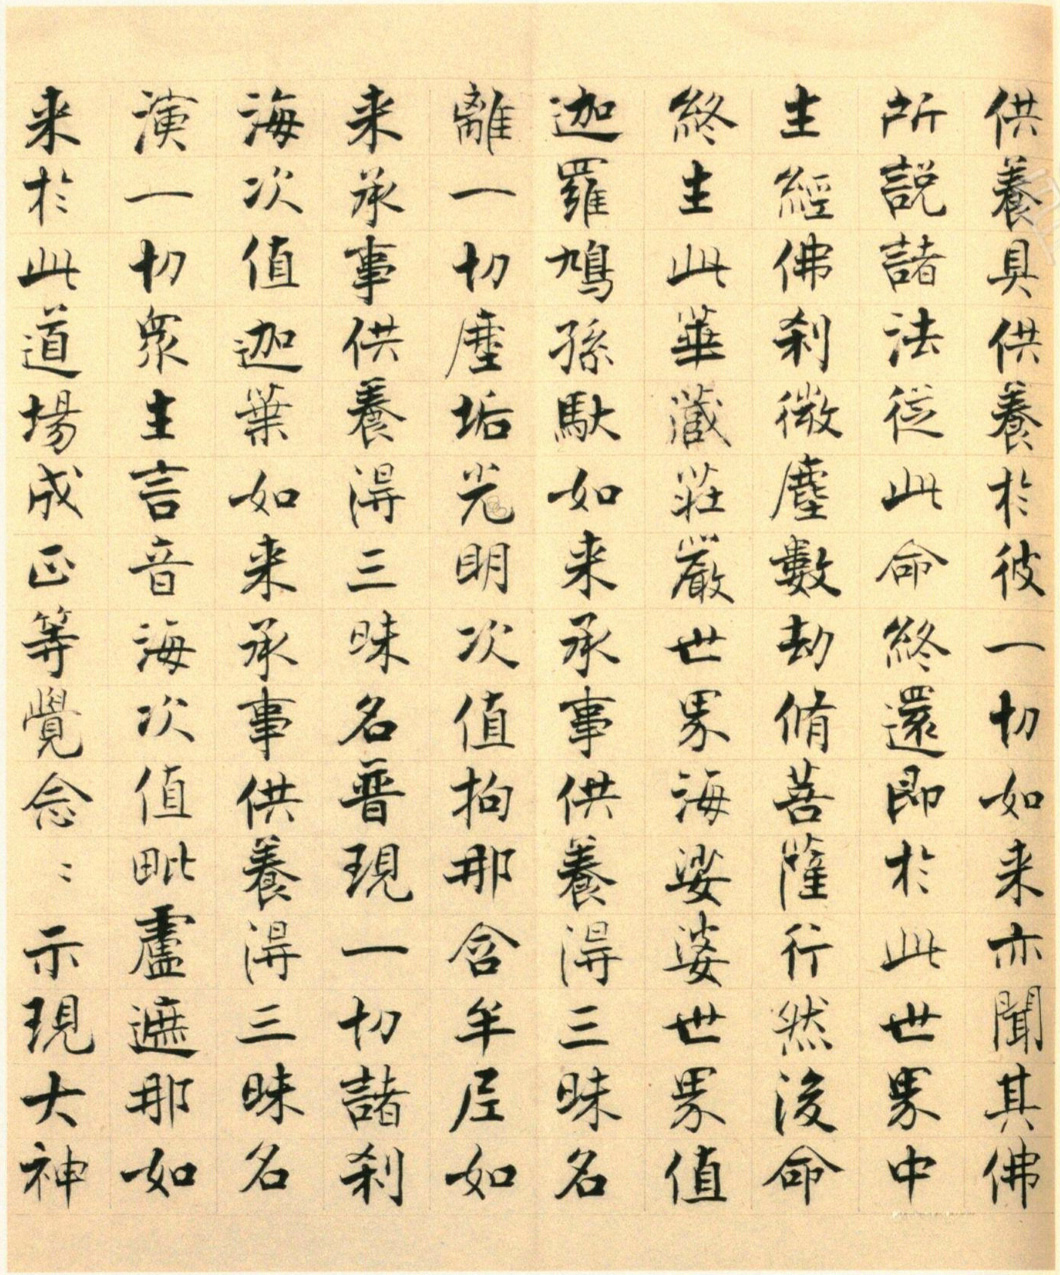 供養具供養於彼一切如来亦聞其佛
所説諸法從此命終還即於此世界中
生經佛刹微塵數劫脩菩薩行然後命
終生此華藏莊嚴世界海娑婆世界值
迦羅鳩孫馱如来承事供養得三昧名
離一切塵垢光明次值拘那含牟尼如
来承事供養得三昧名普現一切諸刹
海次值迦葉如来承事供養得三昧名
演一切眾生言音海次值毗盧遮那如
来於此道場成正等覺念〻示現大神